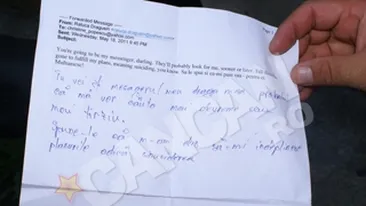 Forwarded Message
From: Raluca Dragusin
To: christine_popescu@yahoo.com
Sent: Wednesday, May 18, 2011 9:40 PM
Subject:
You're going to be my messenger, darling. They'll probably look for me, sooner or later. Tell
gone to fulfill my plans, meaning suiciding, you know. Sa le spui si ca
Tu vei fi mesagerul meu draga mea, probabil
că mă vor căuta mai devreme sau
mai târziu.
Spune-le că m-am dus să-mi îndeplinesc
planurile adică sinuciderea
CANCAN.RO